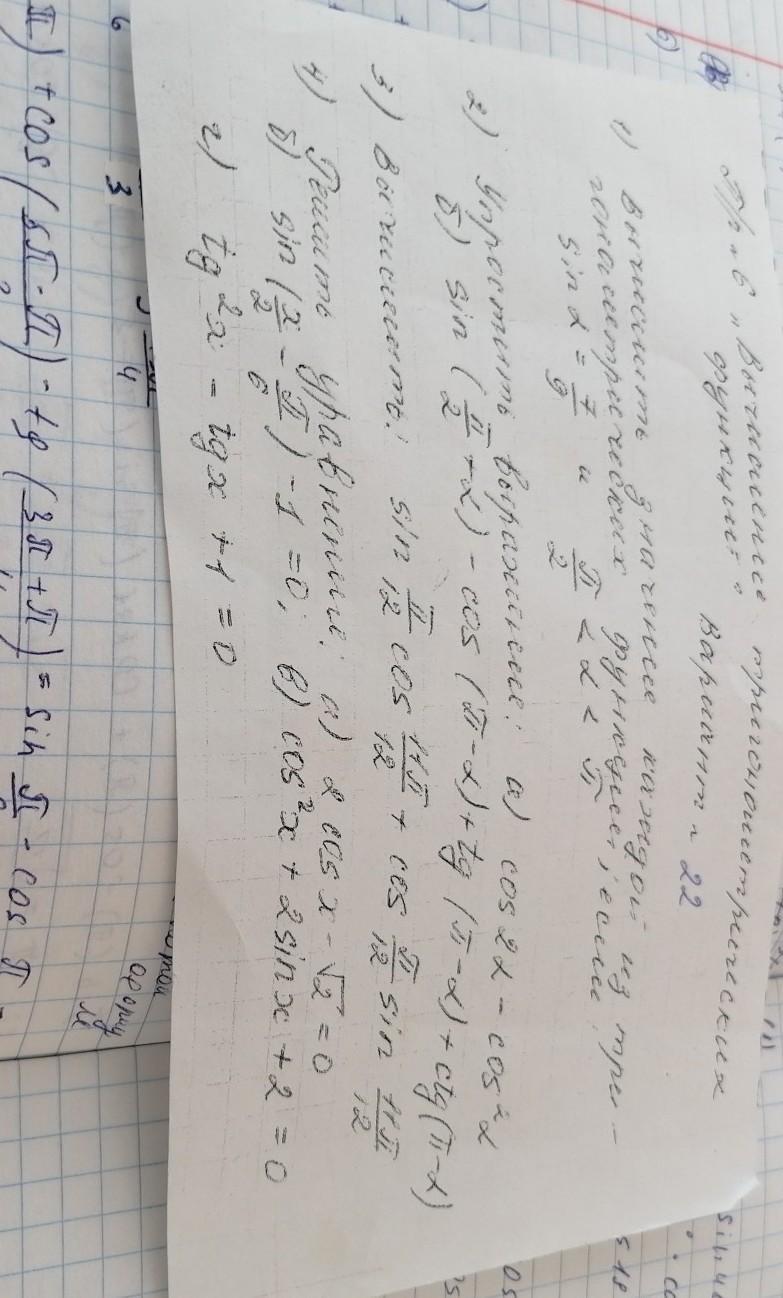 Пр. в „Вычисление тригонометрических
функций".
Вариант ~ 22
1) Вычислить значение каждой из три-
гонометрических функций, если:
sin α = 7/9 и π/2 < α < π
2) Упростить выражение: а) cos 2α - cos²α
б) sin (π/2 + α) - cos (π - α) + tg (π - α) + ctg (π - α)
3) Вычислить: sin π/12 cos 11π/12 + cos π/12 sin 11π/12
4) Решить уравнение: а) 2 cos x - √2 = 0
б) sin (x/2 - π/6) - 1 = 0; в) cos²x + 2 sin x + 2 = 0
г) tg²x - tg x + 1 = 0
6
б)
3
4
π) + cos ( π - π) - tg (3π + π) = sin π - cos π =